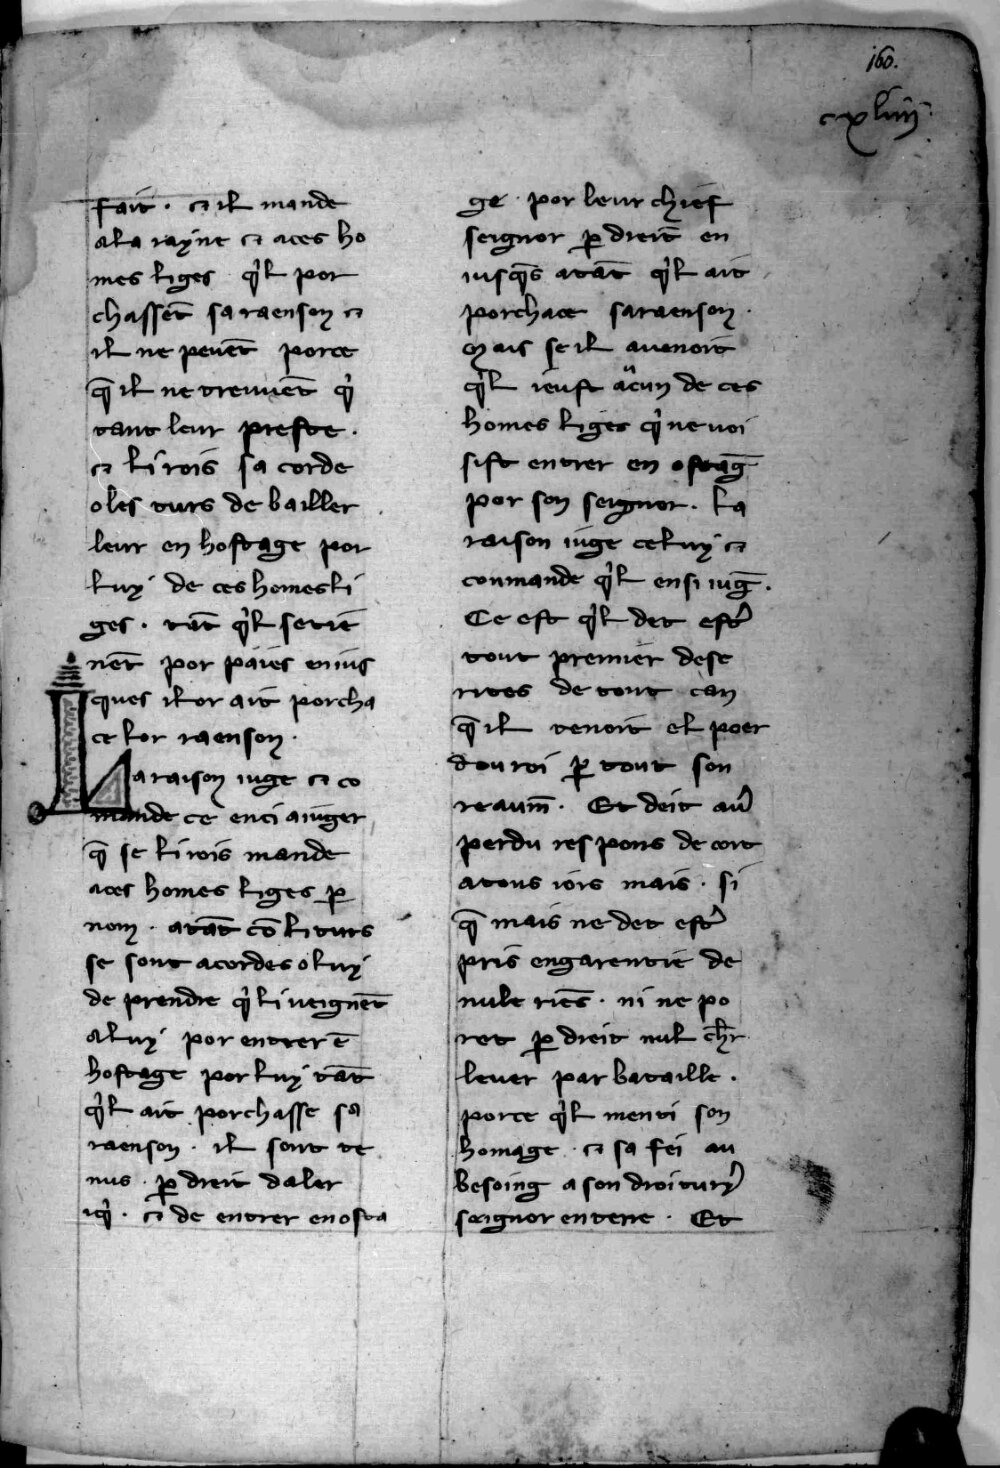 160.
cxliiij
fait . ⁊ il mande
ala rayne ⁊ aces ho
mes liges q̓l por
chassēt sa raenson ⁊
il ne pevēt porce
q̄ il ne treuuēt q̓
tant leur preste .
⁊ li rois sa corde
o les turs de bailler
leur en hostage por
luy de ces homes li
ges . tāt q̓l se tiē
nēt por paies enius
ques il or ait porcha
ce lor raenson .
La raison iuge ⁊ co
mande ce enci aiuger
q̄ se li rois mande
aces homes liges ꝑ
nom . atāt cō li turs
se sont acordes o luy
de prendre q̓ li veignēt
a luy por entrer ē
hostage por luy tāt
q̓l ait porchasse sa
raenson . il sont te
nus . ꝑ dreit daler
iq̓ . ⁊ de entrer en osta
ge . por leur chief
seignor ꝑ dreit en
iusq̄s atāt q̓l ait
porchace sa raenson .
Mais se il auenoit
q̓l ieust aucun de ces
homes liges q̓ ne uoi
sist entrer en ostaḡ
por son seignor . La
raison iuge celuy ⁊
coumande q̓l ensi iuḡ .
Ce est q̓l det est̓
tout premier dese
rites de tout can
q̄ il tenoit el poer
dou roi ꝑ tout son
reaum̄ . Et deit au̓
perdu respons de cort
a tous iors mais . si
q̄ mais ne det est̓
pris en garentie de
nule riēs . ni ne po
ret ꝑ dreit nul ch̄r
leuer par bataille .
porce q̓l menti son
homage . ⁊ sa fei au
besoing a son droitury̓
seignor en terre . Et